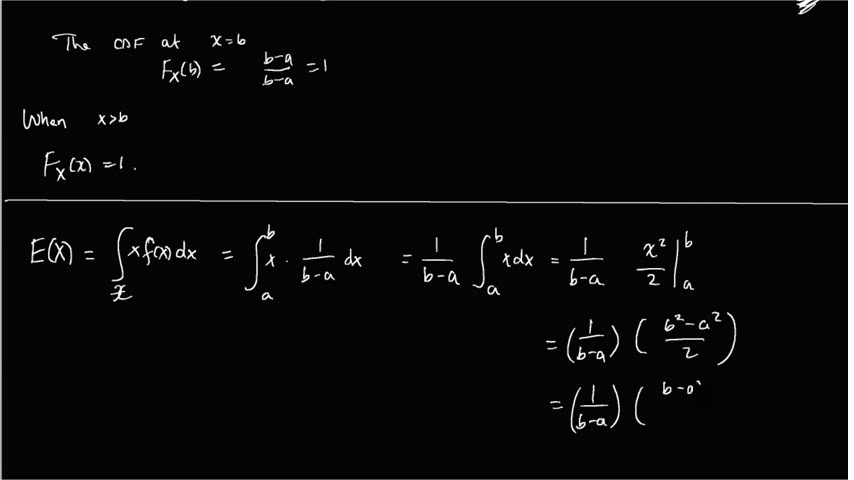 The CDF at x=b
F_X(b) = \frac{b-a}{b-a} = 1
When x>b
F_X(x) = 1.
E(X) = \int_{\mathcal{X}} x f(x) dx = \int_a^b x \cdot \frac{1}{b-a} dx = \frac{1}{b-a} \int_a^b x dx = \frac{1}{b-a} \frac{x^2}{2} |_a^b
= (\frac{1}{b-a}) ( \frac{b^2-a^2}{2} )
= (\frac{1}{b-a}) ( b-a